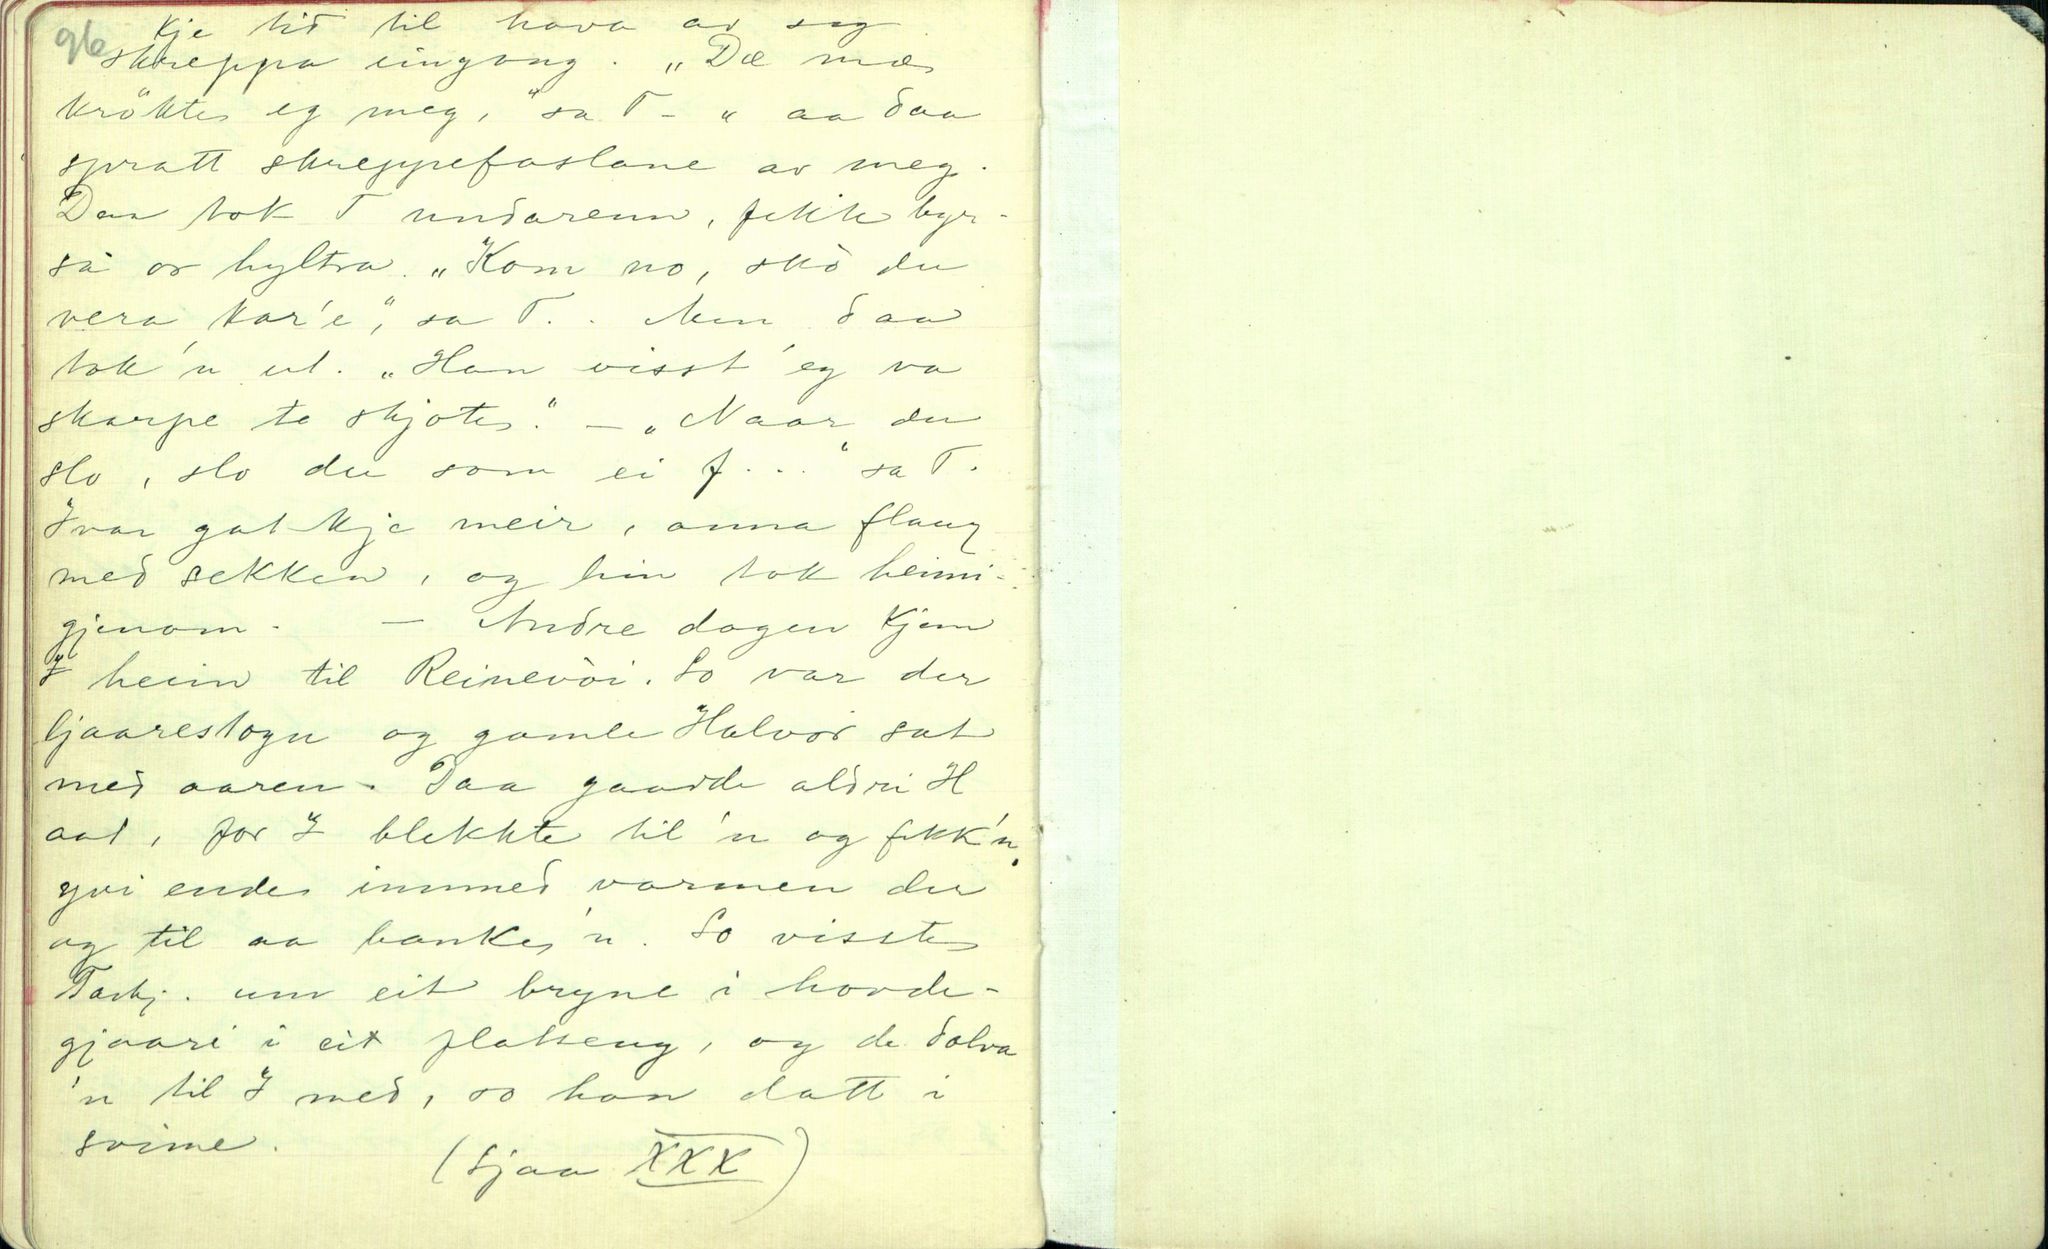 96
kje tid til hava av seg
skreppa eingong. „Dæ mæ
krökte eg meg,“ sa T – „ aa daa
spratt skreppefatlane av meg.
Daa tok T undarenn, fekk byr-
sa or hyltra. „Kom no, skò du
vera kar'e“, sa T.. Men daa
tok'n ut. „Han visst' eg va
skarpe te skjote“. – „Naar du
slo, slo du som ei f...“ sa T.
Ivar gat kje meir, anna flaug
med sekken, og hin tok heimi-
gjenom. — Andre dagen kjem
I heim til Reinevòi. So var der
ljaareslogn og gamle Halvor sat
med aaren. Daa gaadde aldri H
aat, for I blekkte til'n og fekk'n
yvi ende innmed varmen der
og til aa banke'n. So visste
Tarkj. um eit bryne i hovde-
gjaari i eit flatseng, og de dalva
'n til I med, so han datt i
svime.
(Sjaa XXX)